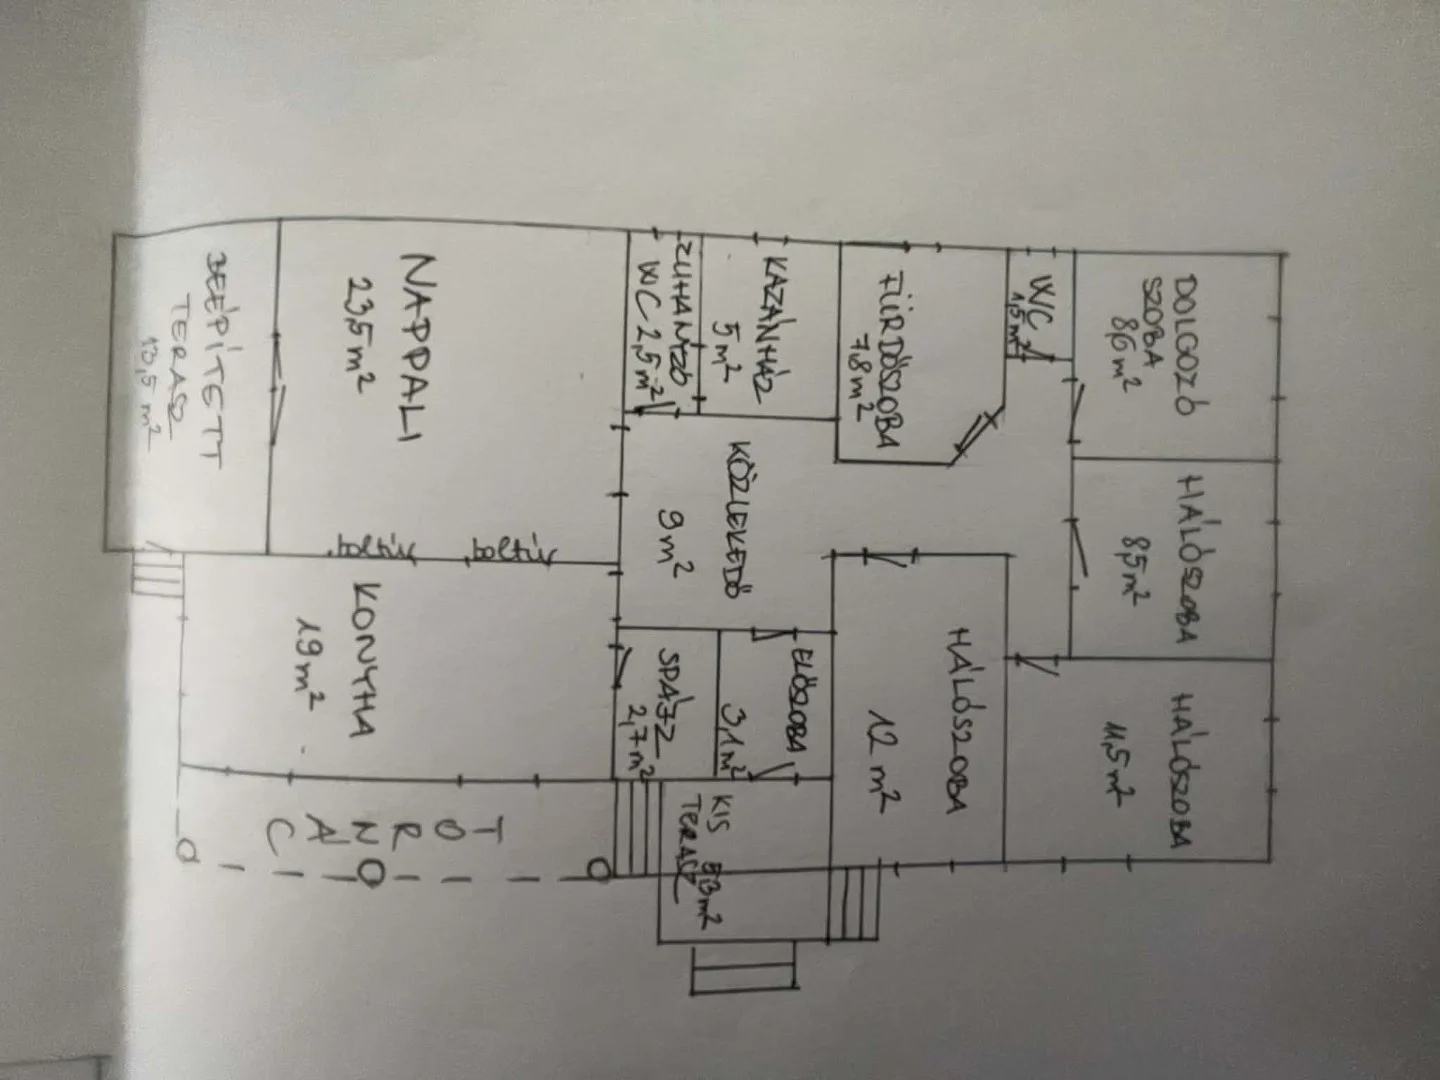 DOLGOZÓ
SZOBA
8,6 m²
HÁLÓSZOBA
8,5 m²
HÁLÓSZOBA
11,5 m²
WC
1,5 m²
FÜRDŐSZOBA
7,8 m²
HÁLÓSZOBA
12 m²
KAZÁNHÁZ
5 m²
ZUHANYZÓ
WC 2,5 m²
KÖZLEKEDŐ
9 m²
ELŐSZOBA
3,1 m²
SPÁJZ
2,7 m²
KIS
TERASZ
5,3 m²
NAPPALI
23,5 m²
boltív
boltív
KONYHA
19 m²
TORNÁC
BEÉPÍTETT
TERASZ
13,5 m²